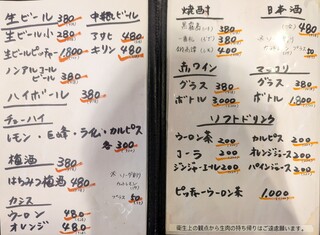 生ビール 380
生ビール小 280
生ビールピッチャー 1,800
ノンアルコール
ビール 380
中瓶ビール
アサヒ 480
キリン 480
ハイボール 380
チューハイ
レモン・巨峰・ライム・カルピス
各300
梅酒 380
はちみつ梅酒 480
カシス
ウーロン 480
オレンジ 480
50
焼酎
380
380
400
日本酒
480
赤ワイン
グラス 380
ボトル 3000
マッコリ
グラス 380
ボトル 1,800
ソフトドリンク
ウーロン茶 200
コーラ 200
ジンジャーエール 200
カルピス 200
オレンジジュース 200
200
ピッチャーウーロン茶 1,000
衛生上の観点から生肉の持ち帰りはご遠慮願います。